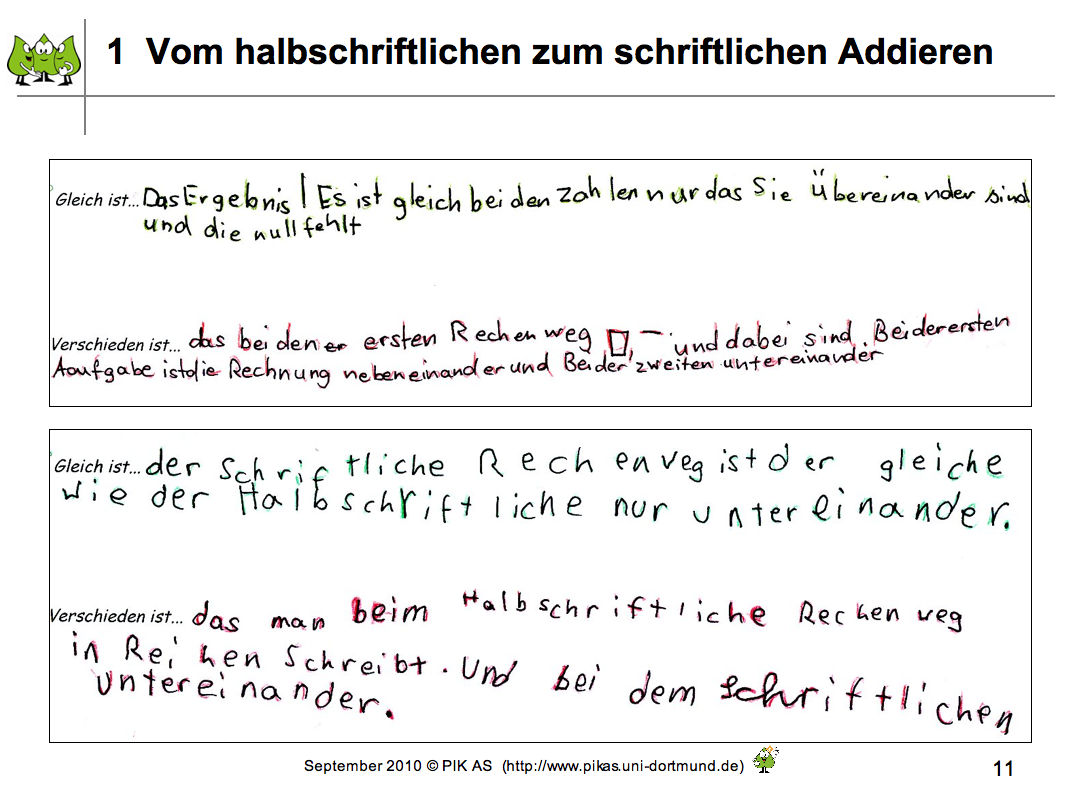 1 Vom halbschriftlichen zum schriftlichen Addieren
Gleich ist... Das Ergebnis | Es ist gleich bei den zahlen nur das Sie übereinander sind
und die null fehlt
Verschieden ist... das bei den ersten Rechenweg □, — und dabei sind. Bei der ersten
Aoufgabe ist die Rechnung nebeneinander und Bei der zweiten untereinander
Gleich ist... der Schriftliche Rechenveg ist der gleiche
wie der Halbschriftliche nur untereinander.
Verschieden ist... das man beim Halbschriftliche Rechenveg
in Reihen Schreibt. Und bei dem schriftlichen
untereinander.
September 2010 © PIK AS (http://www.pikas.uni-dortmund.de)
11